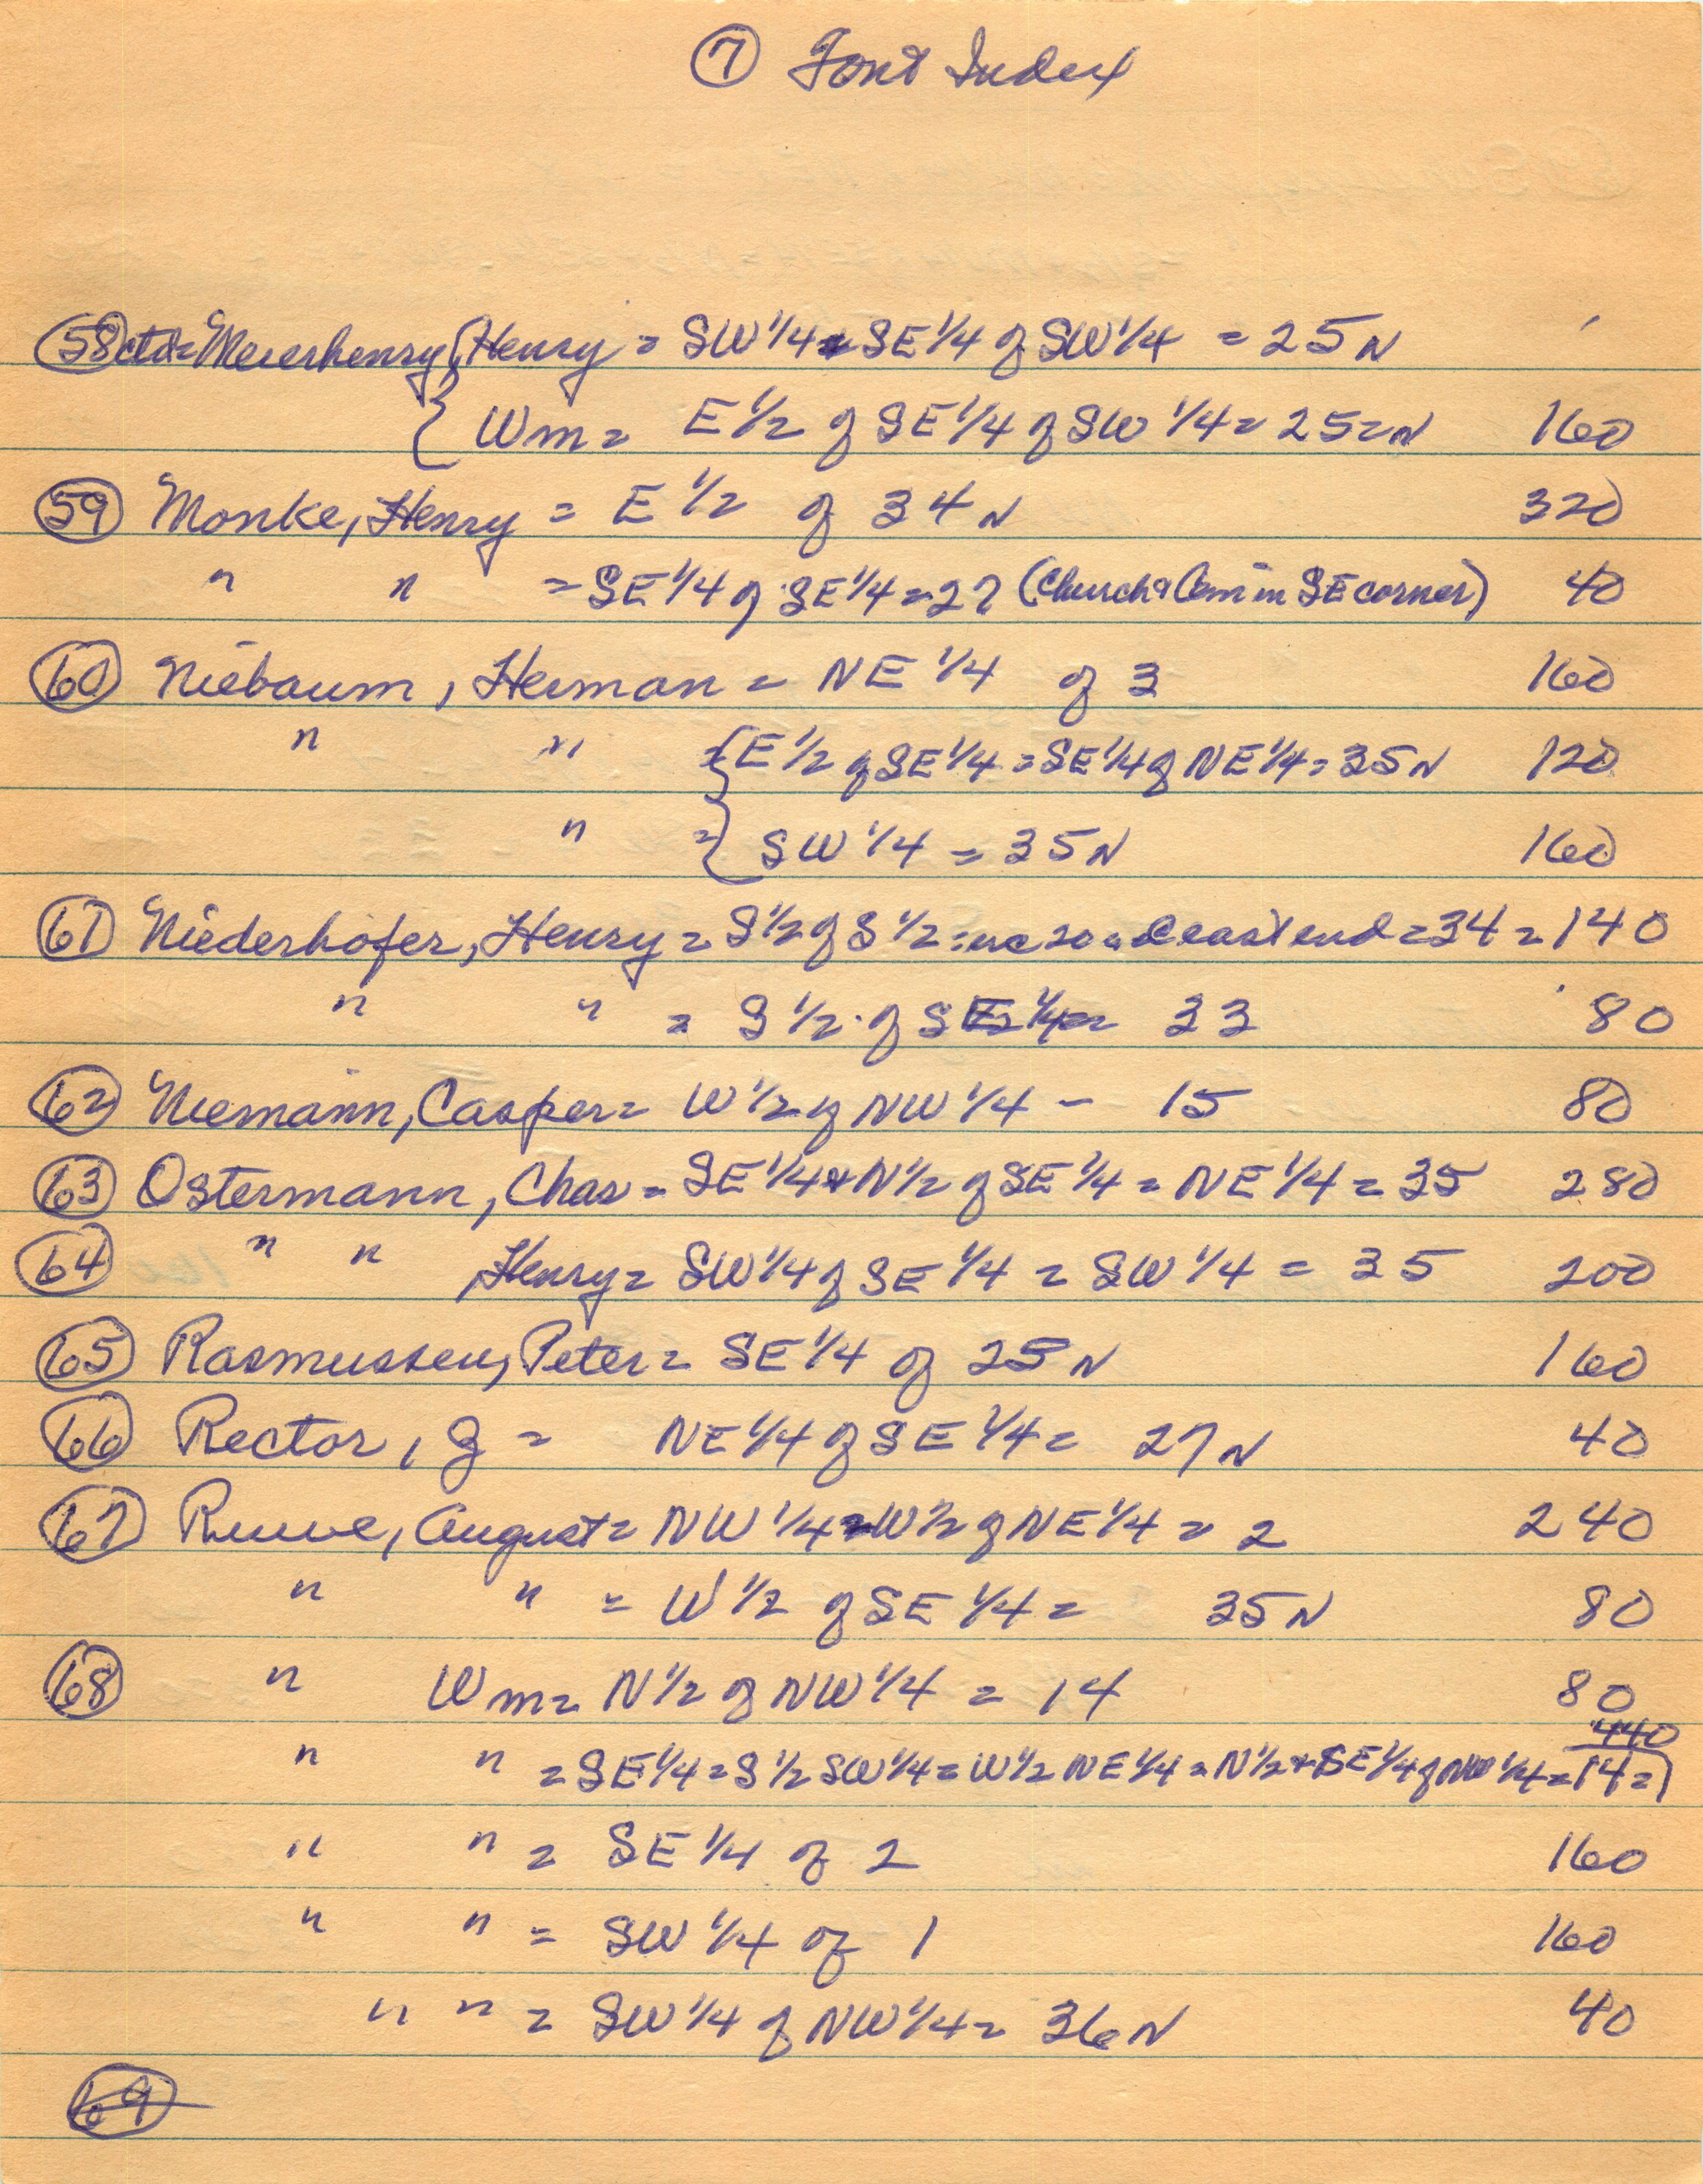 ⑦ Font Index
58 ctd = Meierhenry, Henry = SW 1/4 = SE 1/4 of SW 1/4 = 25 N
{ Wm = E 1/2 of SE 1/4 of SW 1/4 = 25 = N 160
59 Monke, Henry = E 1/2 of 34 N 320
" " = SE 1/4 of SE 1/4 = 27 (Church & Cem in SE corner) 40
60 Niebaum, Herman = NE 1/4 of 3 160
" " { E 1/2 of SE 1/4 = SE 1/4 of NE 1/4 = 35 N 120
" = } SW 1/4 = 35 N 160
61 Niederhofer, Henry = S 1/2 of S 1/2 = 20 east end = 34 = 140
" " = S 1/2 of SE 1/4 = 33 80
62 Niemann, Casper = W 1/2 of NW 1/4 - 15 80
63 Ostermann, Chas = SE 1/4 + N 1/2 of SE 1/4 = NE 1/4 = 35 280
64 " " , Henry = SW 1/4 of SE 1/4 = SW 1/4 = 35 200
65 Rasmussen, Peter = SE 1/4 of 25 N 160
66 Rector, G = NE 1/4 of SE 1/4 = 27 N 40
67 Ruwe, August = NW 1/4 = W 1/2 of NE 1/4 = 2 240
" " = W 1/2 of SE 1/4 = 35 N 80
68 " Wm = N 1/2 of NW 1/4 = 14 80
440
" " = SE 1/4 = S 1/2 SW 1/4 = W 1/2 NE 1/4 = N 1/2 + SE 1/4 of NW 1/4 = 14 =
" " = SE 1/4 of 2 160
" " = SW 1/4 of 1 160
" " = SW 1/4 of NW 1/4 = 36 N 40
69